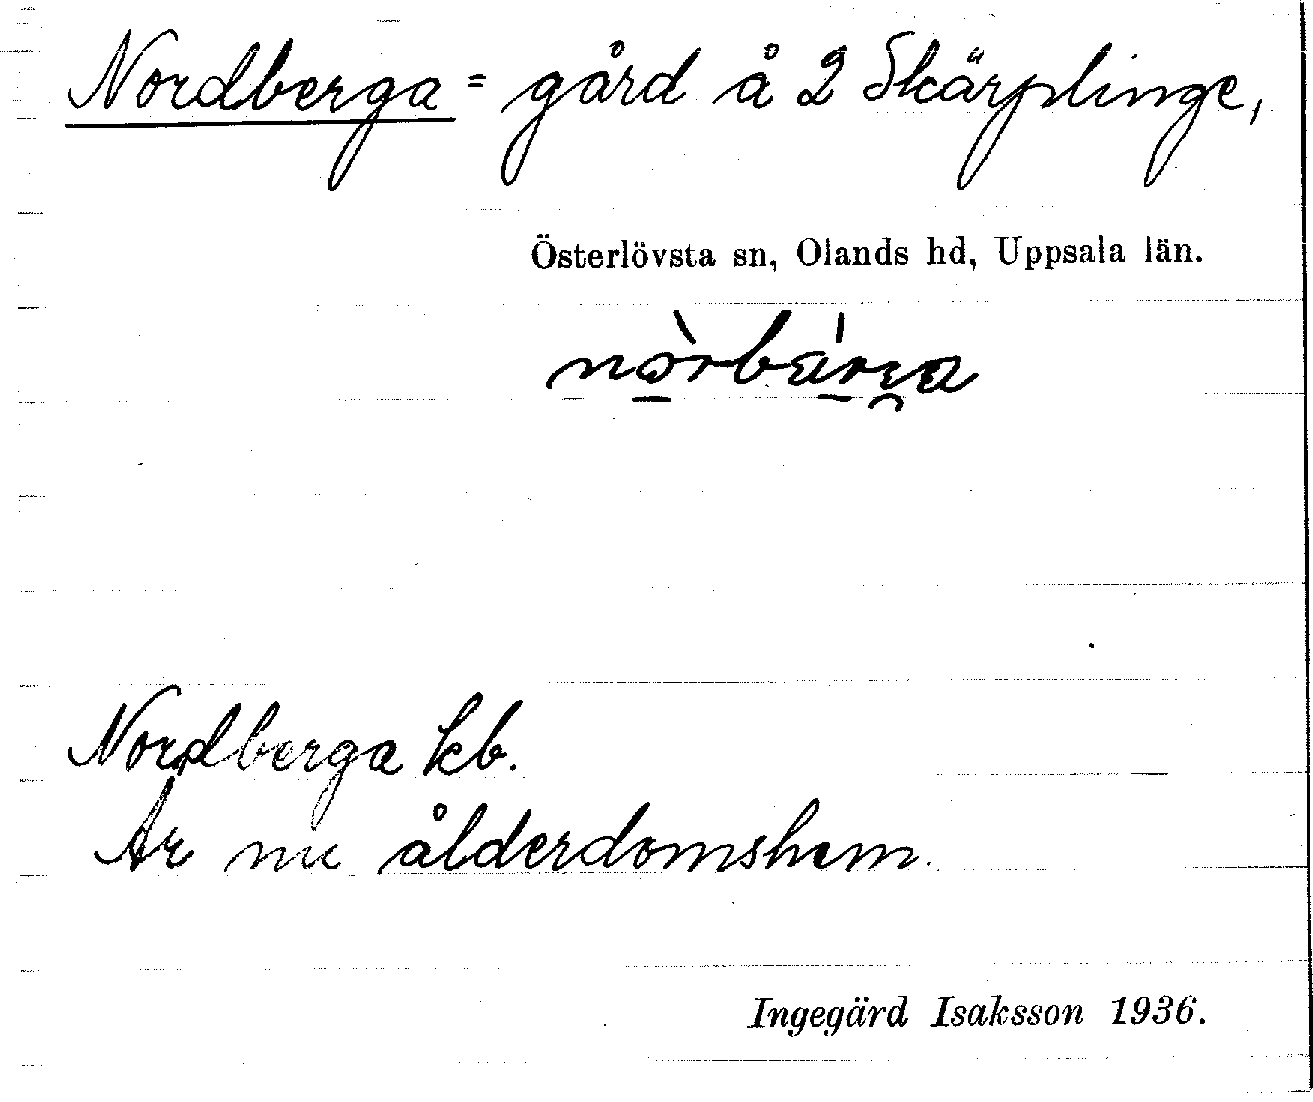 Nordberga = gård å 2 Skärplinge,
Österlövsta sn, Olands hd, Uppsala län.
Nordberga kb.
Är nu ålderdomshem.
Ingegärd Isaksson 1936.